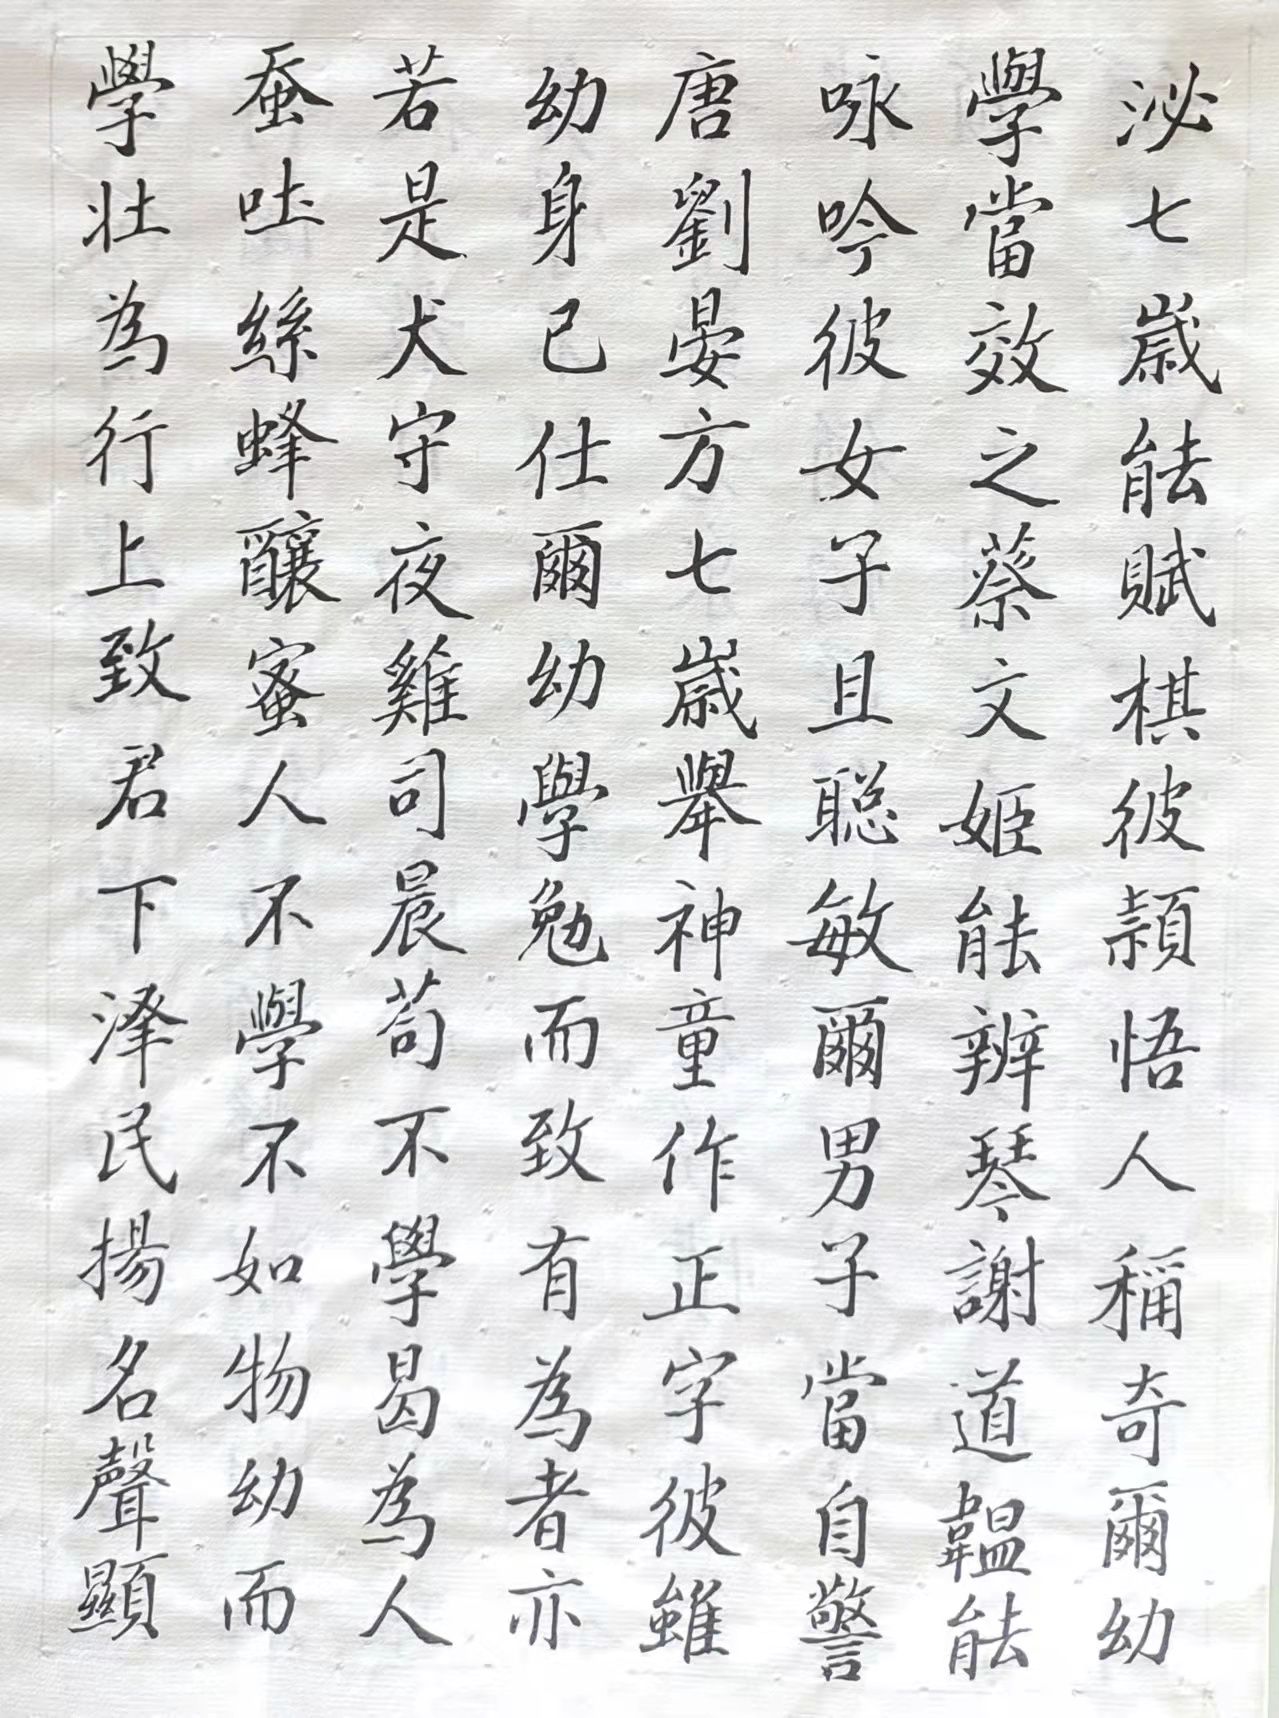 泌七歲能賦棋彼穎悟人稱奇爾幼
學當效之蔡文姬能辨琴謝道韞能
咏吟彼女子且聡敏爾男子當自警
唐劉晏方七歲舉神童作正字彼雖
幼身已仕爾幼學勉而致有為者亦
若是犬守夜雞司晨苟不學曷為人
蚕吐絲蜂釀蜜人不學不如物幼而
學壯為行上致君下澤民揚名聲顯